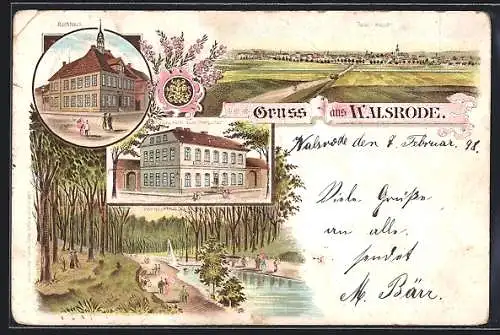 Rathhaus.
Gruss aus WALSRODE.
Walsrode den 7. Februar 98.
Viele Grüße
an alle
sendet
M. Bärr.